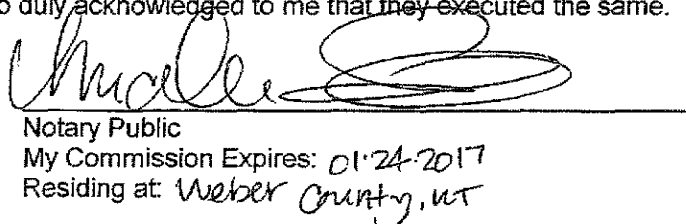 o duly acknowledged to me that they executed the same.
Notary Public
My Commission Expires: 01-24-2017
Residing at: Weber County, UT